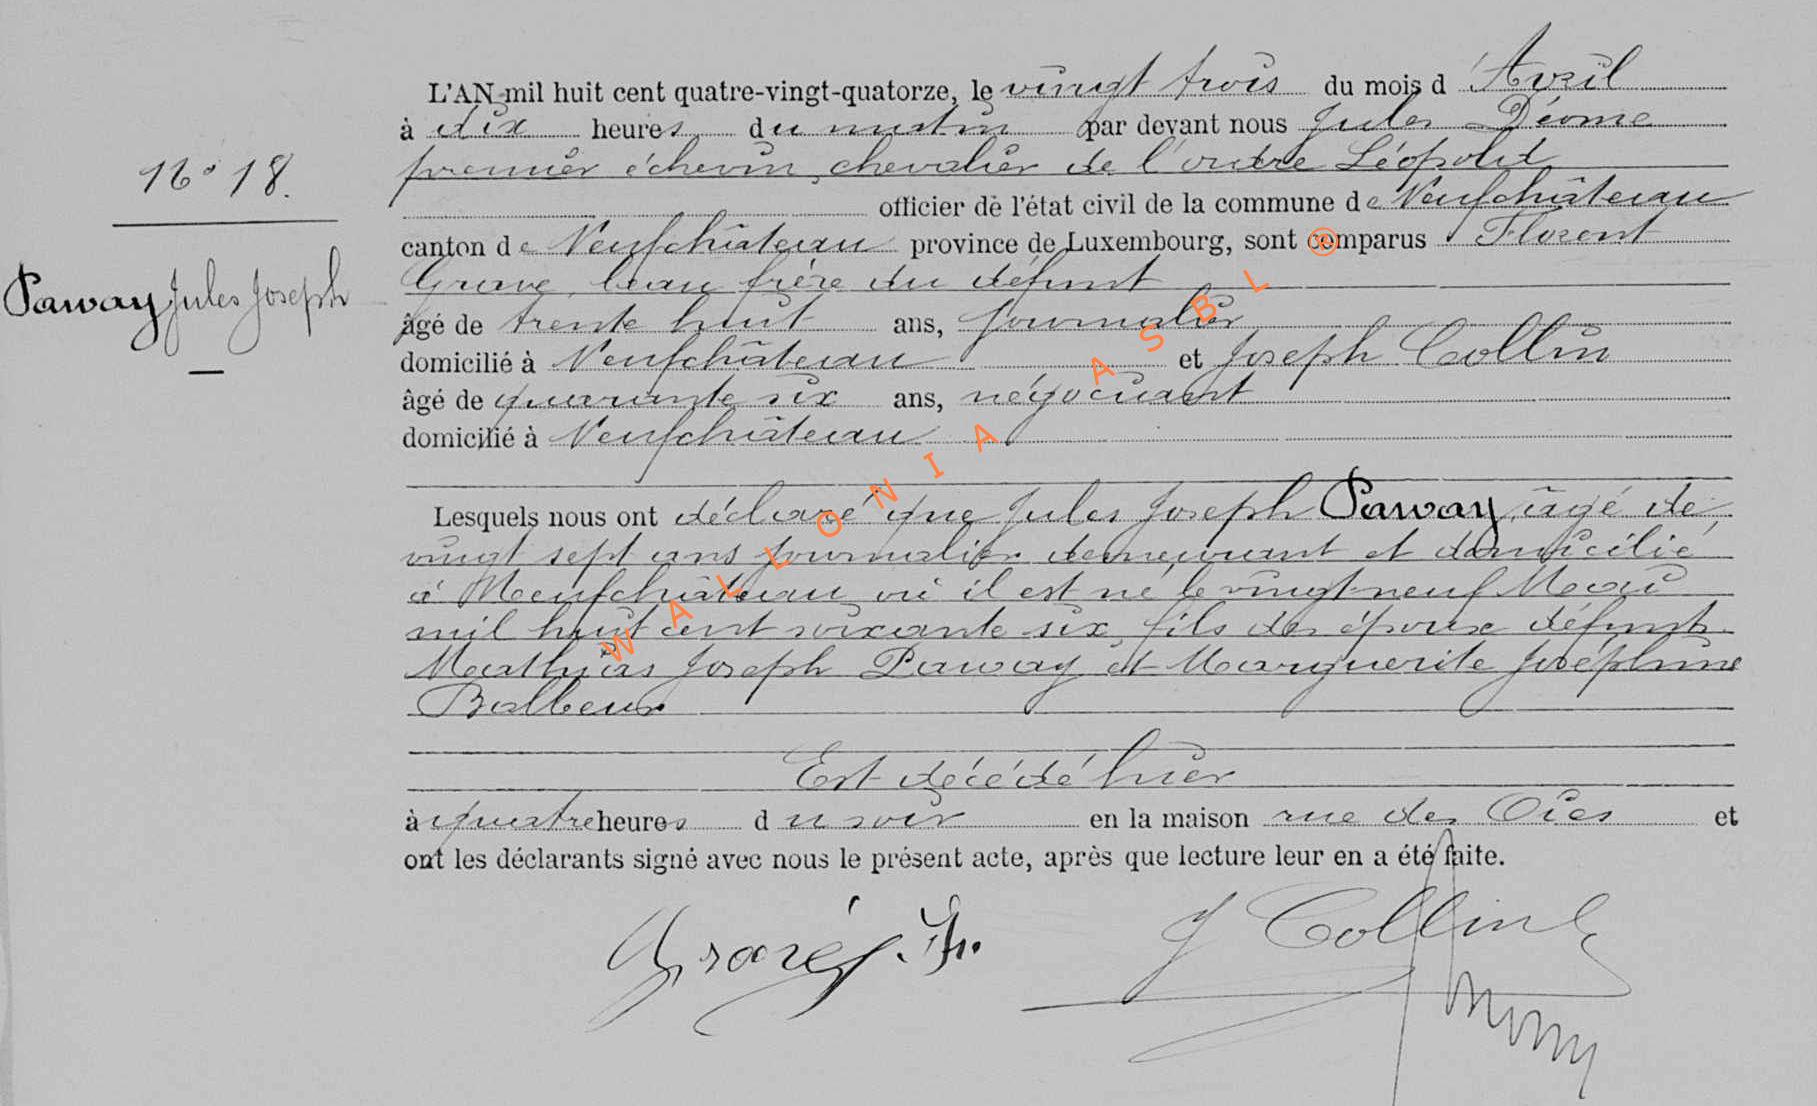 L'AN mil huit cent quatre-vingt-quatorze, le vingt trois du mois d'Avril
à dix heures du matin par devant nous Jules Déome
premier échevin, chevalier de l'ordre Léopold
officier de l'état civil de la commune de Neufchâteau
canton de Neufchâteau province de Luxembourg, sont comparus Florent
beau frère du défunt
âgé de trente huit ans, journalier
domicilié à Neufchâteau et Joseph Collin
âgé de quarante six ans, négociant
domicilié à Neufchâteau
N° 18.
Paway Jules Joseph
Lesquels nous ont déclaré que Jules Joseph Paway, âgé de
vingt sept ans journalier demeurant et domicilié
à Neufchâteau où il est né le vingt-neuf Mai
mil huit cent soixante six, fils des époux défunts
Mathias Joseph Paway et Marguerite Joséphine
Balbeur
Est décédé hier
à quatre heures du soir en la maison rue des Oies et
ont les déclarants signé avec nous le présent acte, après que lecture leur en a été faite.
J Collin
WALLONIA ASBL ®